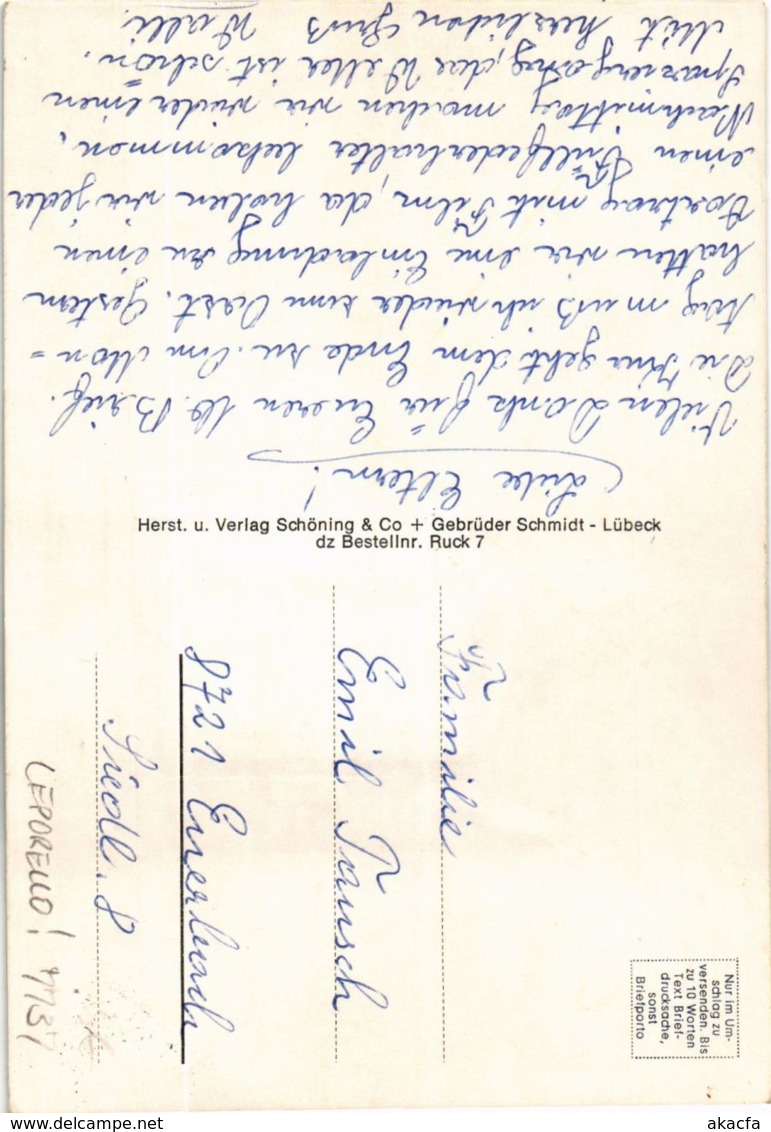 Liebe Eltern!
Vielen Dank für Eueren lb. Brief.
Die Kur geht dem Ende zu. Am Mon-
tag muß ich wieder zum Arzt. Gestern
hatten wir eine Einladung zu einen
Vortrag mit Film, da haben wir jeder
einen Füllfederhalter bekommen.
Nachmittag machen wir wieder einen
Spaziergang, das Wetter ist schön.
Mit herzlichen Gruß
Walli.
Herst. u. Verlag Schöning & Co + Gebrüder Schmidt - Lübeck
dz Bestellnr. Ruck 7
Familie
Emil Tausch
8721 Euerbach
Siedl. 8
LEPORELLO!
Nur im Um-
schlag zu
versenden. Bis
zu 10 Worten
Text Brief-
drucksache,
sonst
Briefporto
akacfa